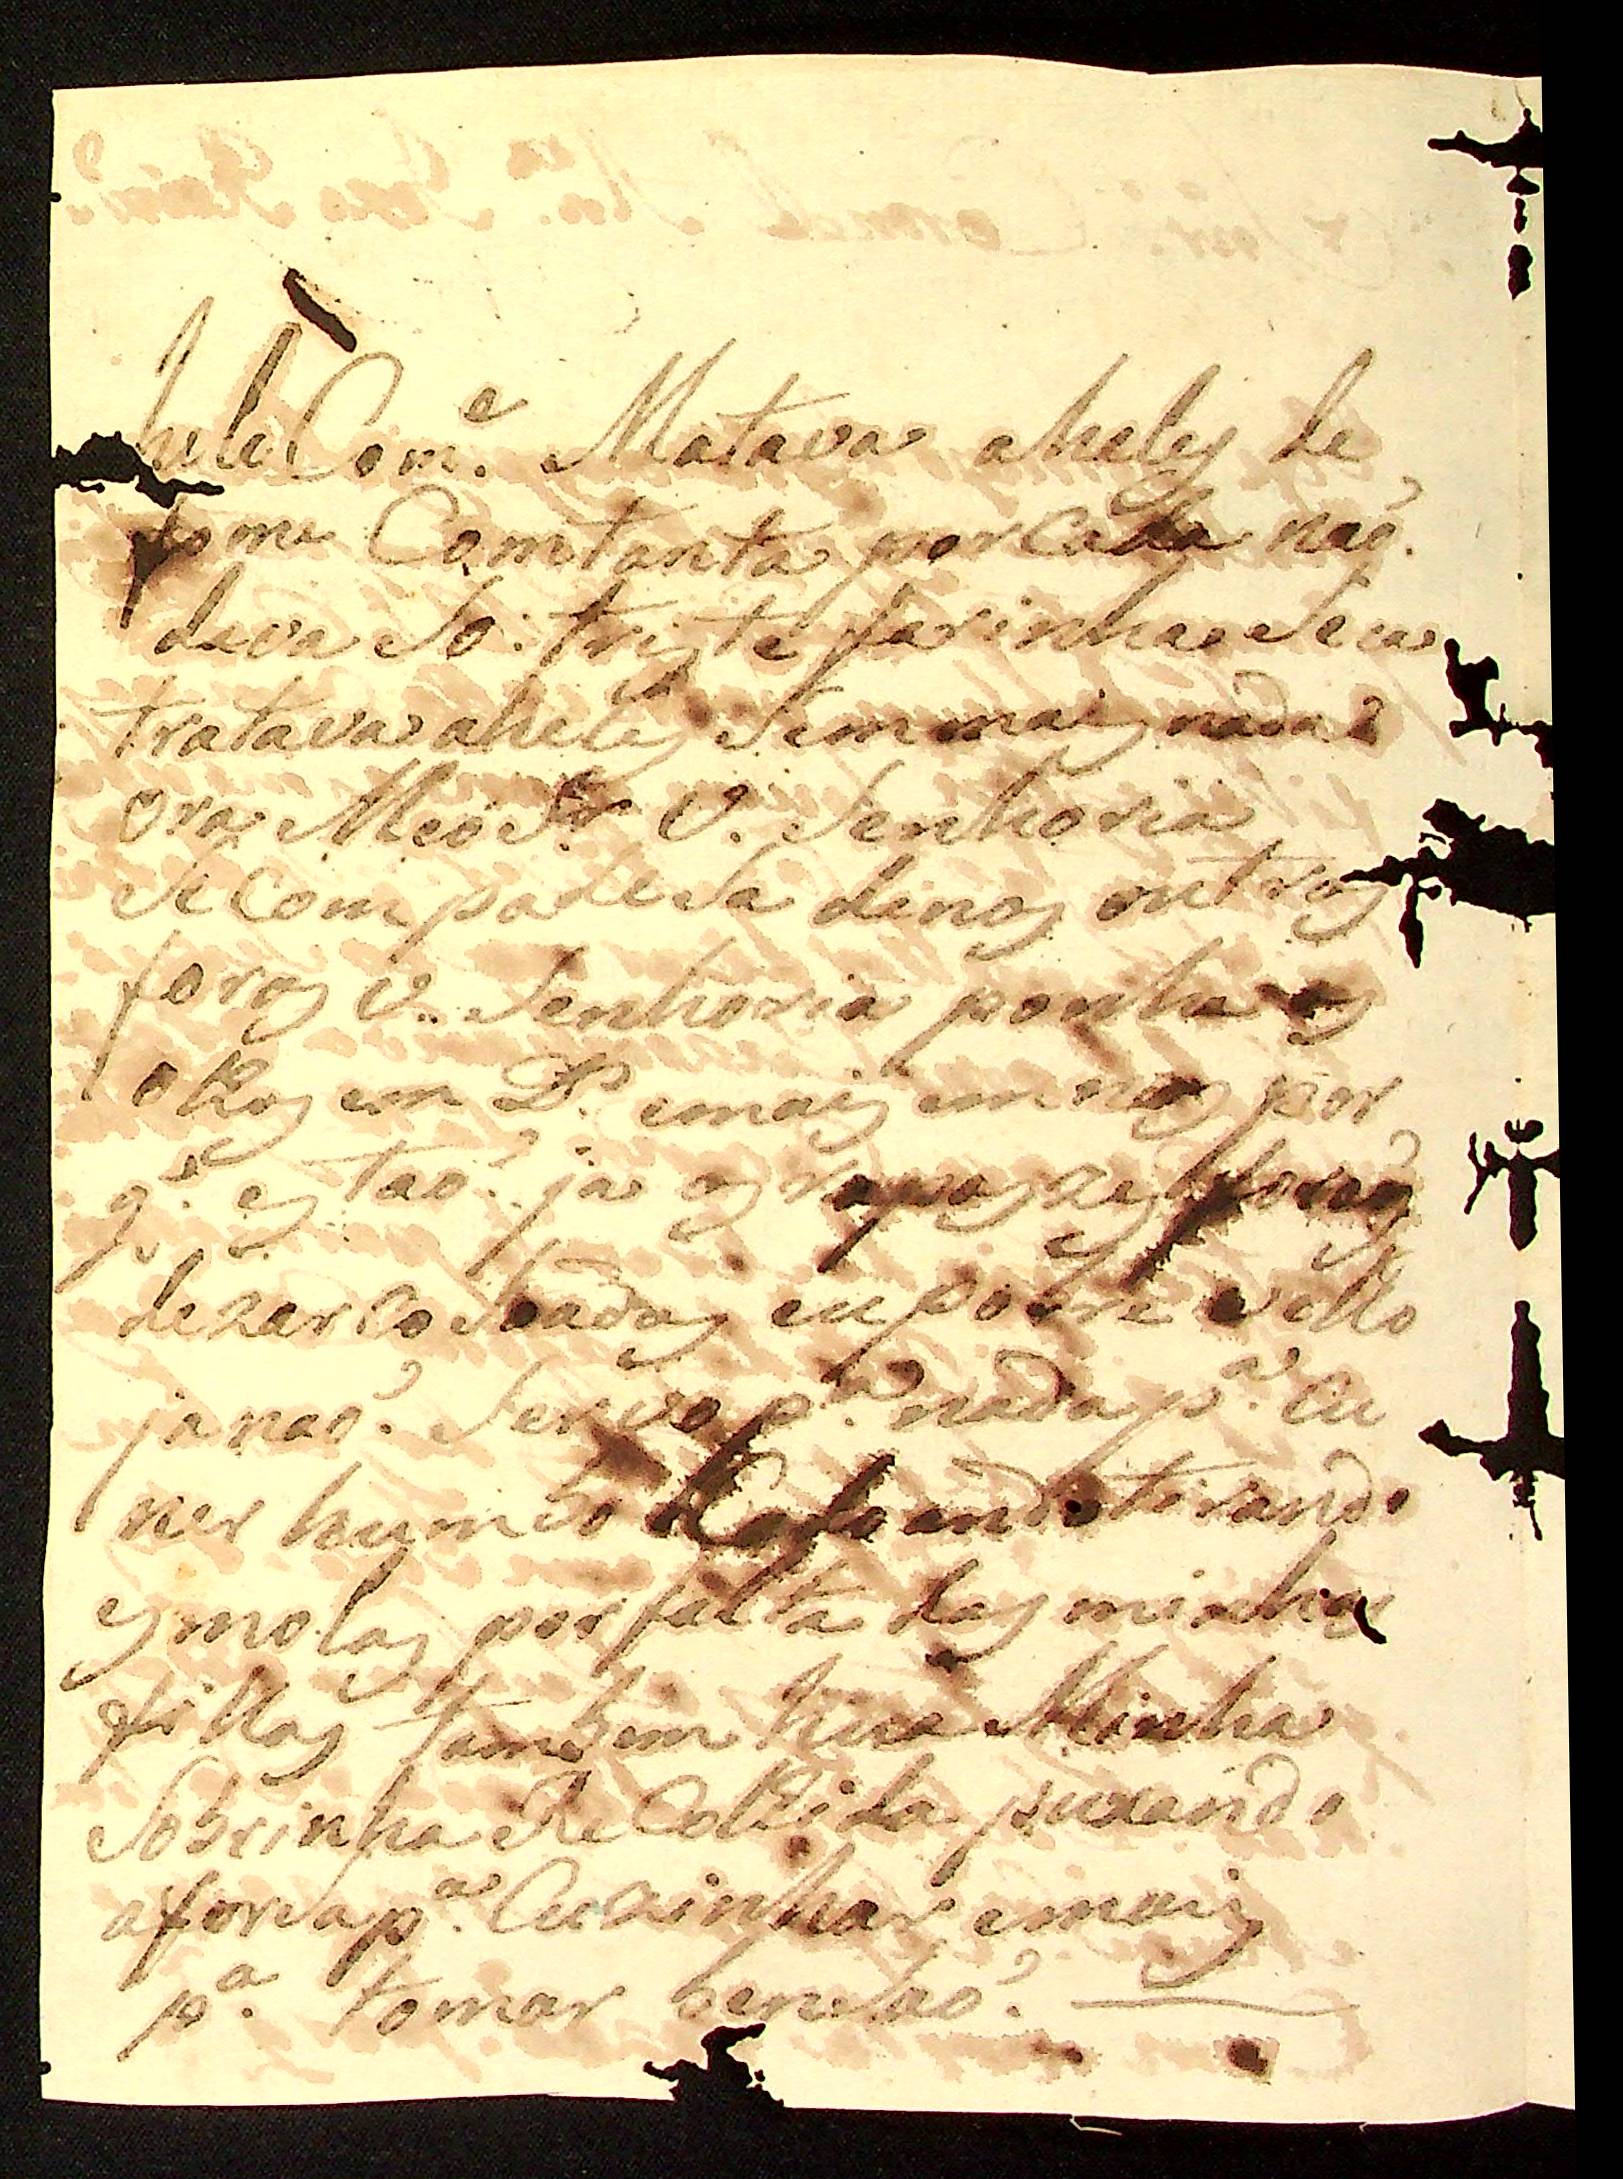 Com.e Matava aheles de
fome Comtanta porcada não
dava So. triste farinha Seca
tratava aheles Sem mais nada
ora Meo Sr V. Senhoria
Se compadeSa denos outros
foros V. Senhoria ponha os
olhos em D.s emais em nos por
q.e es tão. já os rapazes foros
dezarcoSoados eu pobre velho
ja não. Servo p.a nada p.a Cu
mer hum bo Cado ando tirando
esmolas por falta das minhas
filhas tambem hua Minha
Sobrinha ReColhida puxando
aforSa p.a Cuzinhar emais
p.a tomar benSão.